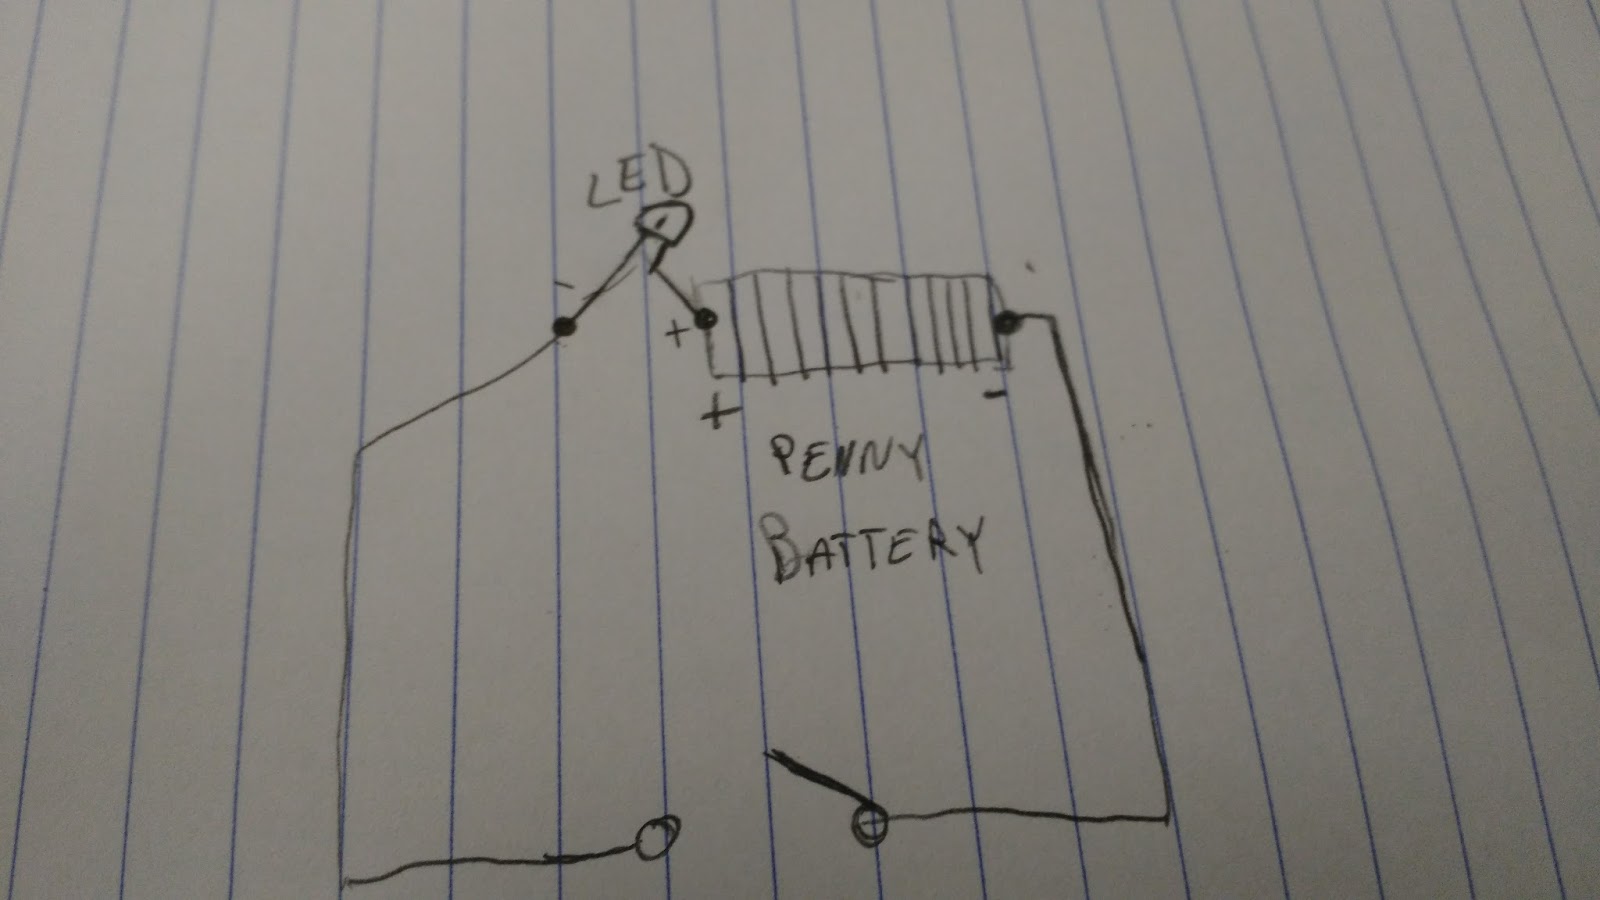 LED
-
+
+ -
PENNY
BATTERY